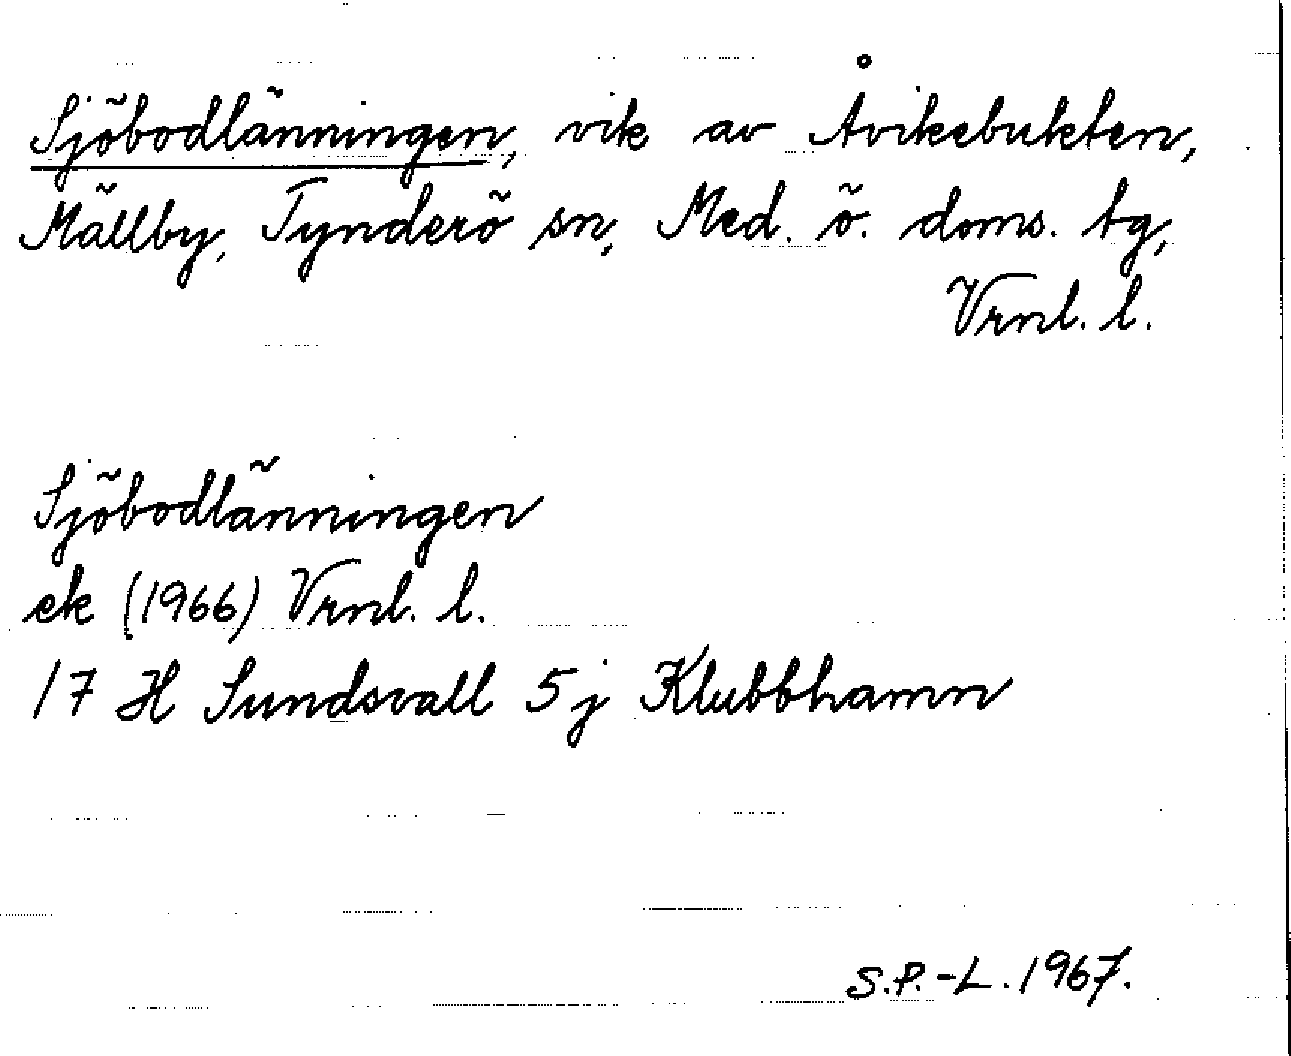 Sjöbodlänningen, vik av Åvikebukten,
Mällby, Tynderö sn, Med. ö. doms. tg,
Vrnl. l.
Sjöbodlänningen
ek (1966) Vrnl. l.
17 H Sundsvall 5 j Klubbhamn
S.P.-L. 1967.